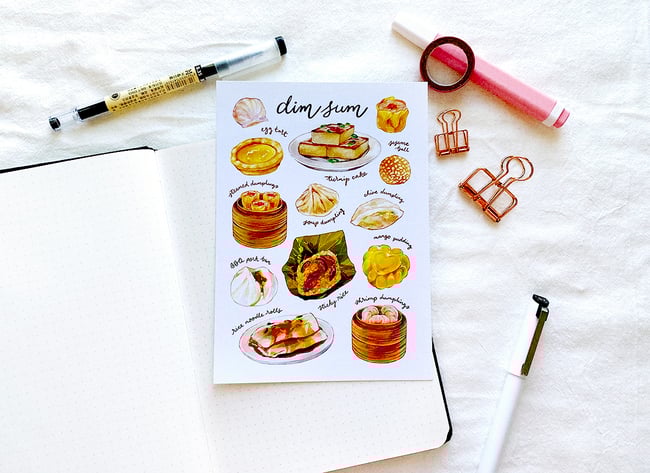 dim sum
egg tart
turnip cake
sesame
ball
steamed dumplings
soup dumpling
chive dumpling
mango pudding
BBQ pork bun
sticky rice
shrimp dumplings
rice noodle rolls